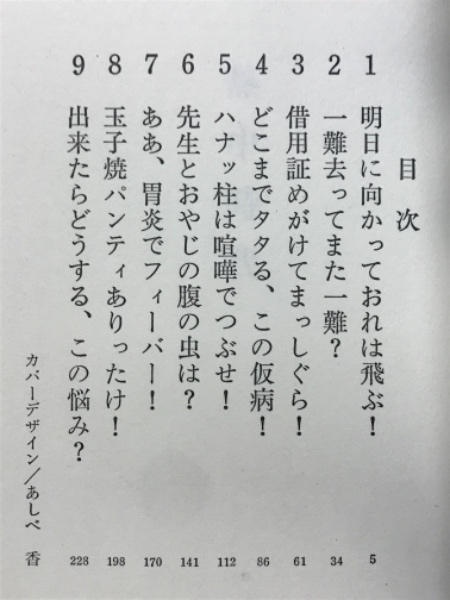 目次
1 明日に向かっておれは飛ぶ! 5
2 一難去ってまた一難? 34
3 借用証めがけてまっしぐら! 61
4 どこまでタタる、この仮病! 86
5 ハナッ柱は喧嘩でつぶせ! 112
6 先生とおやじの腹の虫は? 141
7 ああ、胃炎でフィーバー! 170
8 玉子焼パンティありったけ! 198
9 出来たらどうする、この悩み? 228
カバーデザイン/あしべ 香